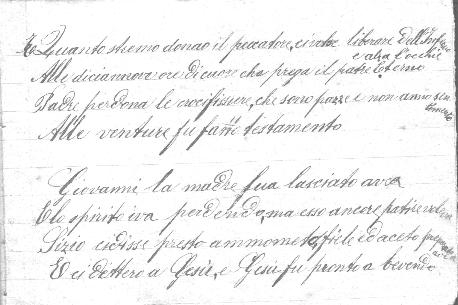 Quanto stremo donao il peccatore, ci volse liberare Dell'Inferno
e alza l'occhi
Alle diciannove ore di cuore che prega il patre Eterno
Padre perdona le crocifissure, che sono pazze e non anno sen
timento
Alle venture fu farre testamento
Giovanni la madre sua lasciato avea
E lo spirito iva perdendo, ma esso ancore patire voleva
Sizio ci disse presto ammo fiele ed aceto
E ci dettero a Gesù, e Gesù fu pronto a bevendo